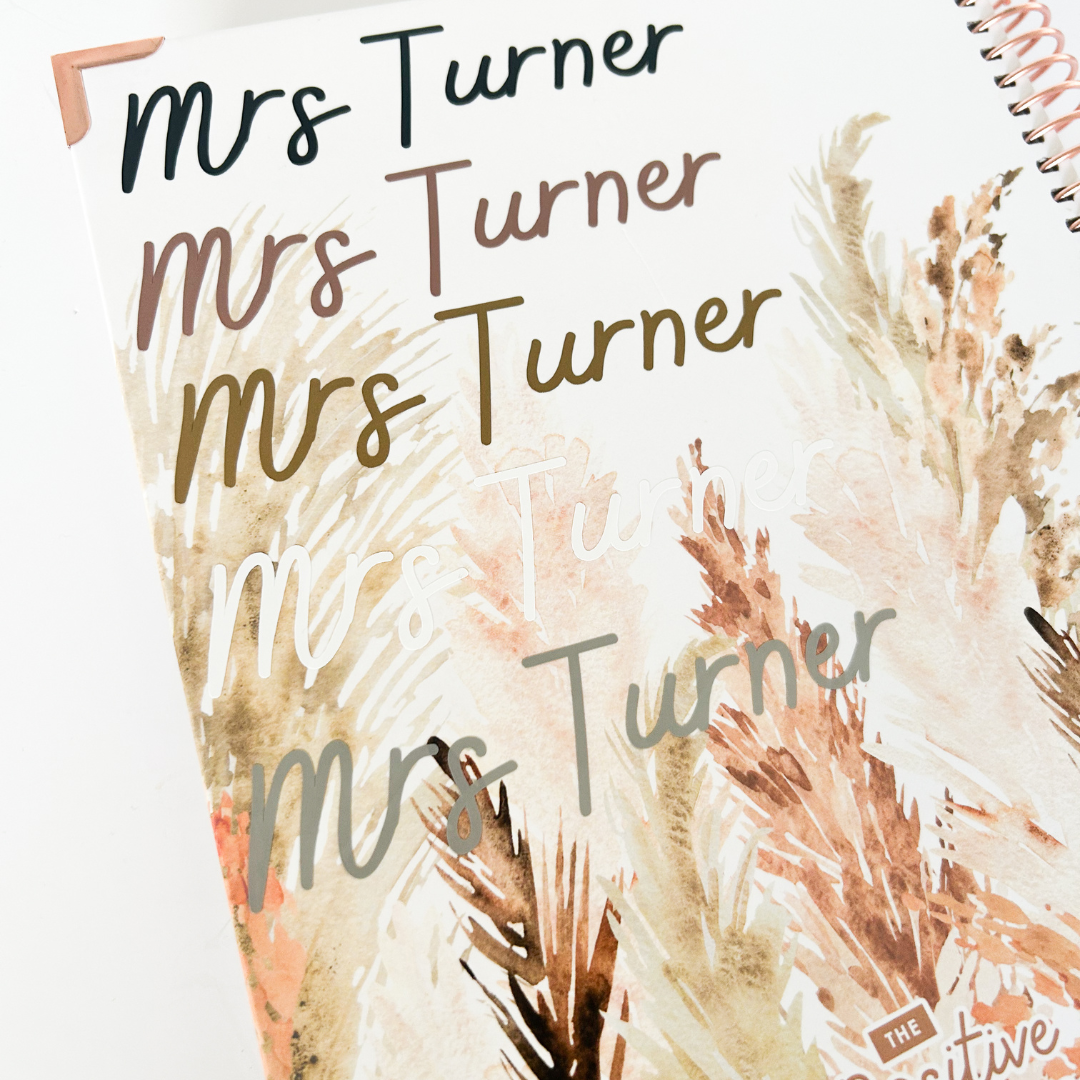 Mrs Turner
Mrs Turner
Mrs Turner
Mrs Turner
Mrs Turner
THE
Positive